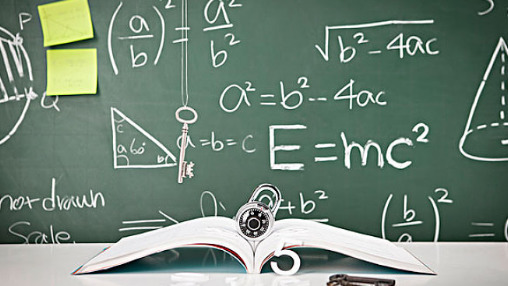 P
(a/b)² = a²/b²
√b²-4ac
a²=b²-4ac
Q
c
a 60° b
a=b=c
E=mc²
not drawn
Scale
+ b²
(b/a)²
=